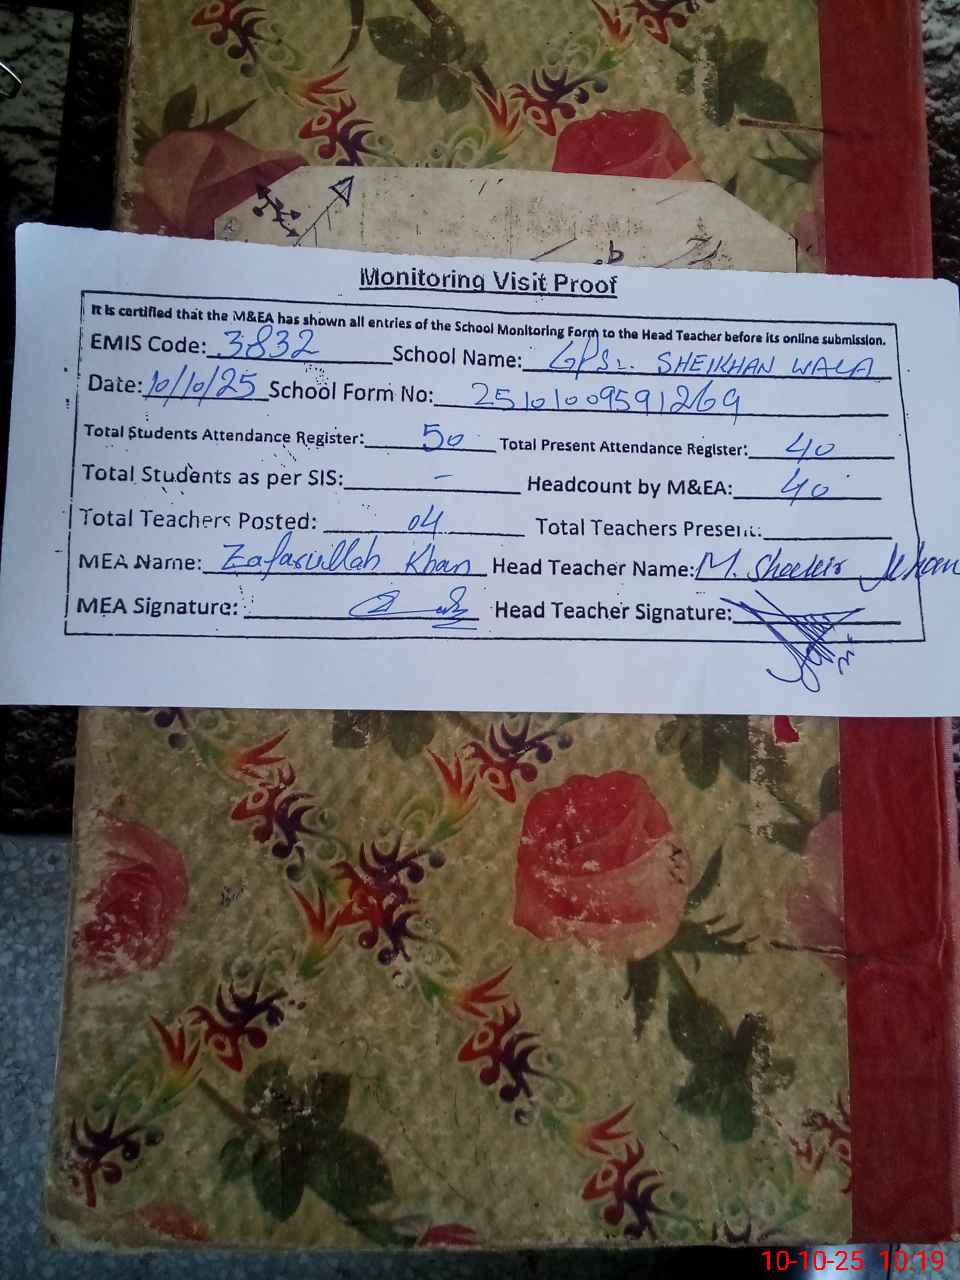 Monitoring Visit Proof
It is certified that the M&EA has shown all entries of the School Monitoring Form to the Head Teacher before its online submission.
EMIS Code: 3832 School Name: GPS SHEIKHAN WALA
Date: 10/10/25 School Form No: 25101009591269
Total Students Attendance Register: 50 Total Present Attendance Register: 40
Total Students as per SIS: - Headcount by M&EA: 40
Total Teachers Posted: 04 Total Teachers Present:
MEA Name: Zafarullah Khan Head Teacher Name: M.
MEA Signature: Head Teacher Signature:
10-10-25 10:19